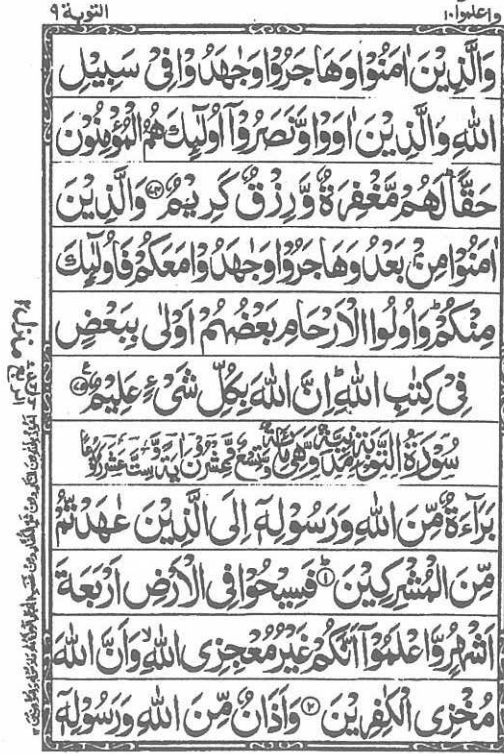 واعلموا١٠
التوبة ٩
وَالَّذِيْنَ اٰمَنُوْا وَهَاجَرُوْا وَجٰهَدُوْا فِيْ سَبِيْلِ
اللّٰهِ وَالَّذِيْنَ اٰوَوْا وَّنَصَرُوْٓا اُولٰٓئِكَ هُمُ الْمُؤْمِنُوْنَ
حَقًّا ؕ لَهُمْ مَّغْفِرَةٌ وَّرِزْقٌ كَرِيْمٌ ۝۷۴ وَالَّذِيْنَ
اٰمَنُوْا مِنْۢ بَعْدُ وَهَاجَرُوْا وَجٰهَدُوْا مَعَكُمْ فَاُولٰٓئِكَ
مِنْكُمْ ؕ وَاُولُوا الْاَرْحَامِ بَعْضُهُمْ اَوْلٰى بِبَعْضٍ
فِيْ كِتٰبِ اللّٰهِ ؕ اِنَّ اللّٰهَ بِكُلِّ شَيْءٍ عَلِيْمٌ ۝۷۵
سُوْرَةُ التَّوْبَةِ مَدَنِيَّةٌ وَّهِيَ مِائَةٌ وَّتِسْعٌ وَّعِشْرُوْنَ اٰيَةً وَّسِتَّ عَشَرَ رُكُوْعًا
بَرَآءَةٌ مِّنَ اللّٰهِ وَرَسُوْلِهٖٓ اِلَى الَّذِيْنَ عٰهَدْتُّمْ
مِّنَ الْمُشْرِكِيْنَ ۝۱ؕ فَسِيْحُوْا فِي الْاَرْضِ اَرْبَعَةَ
اَشْهُرٍ وَّاعْلَمُوْٓا اَنَّكُمْ غَيْرُ مُعْجِزِي اللّٰهِ ۙ وَاَنَّ اللّٰهَ
مُخْزِي الْكٰفِرِيْنَ ۝۲ وَاَذَانٌ مِّنَ اللّٰهِ وَرَسُوْلِهٖٓ
منزل ۲